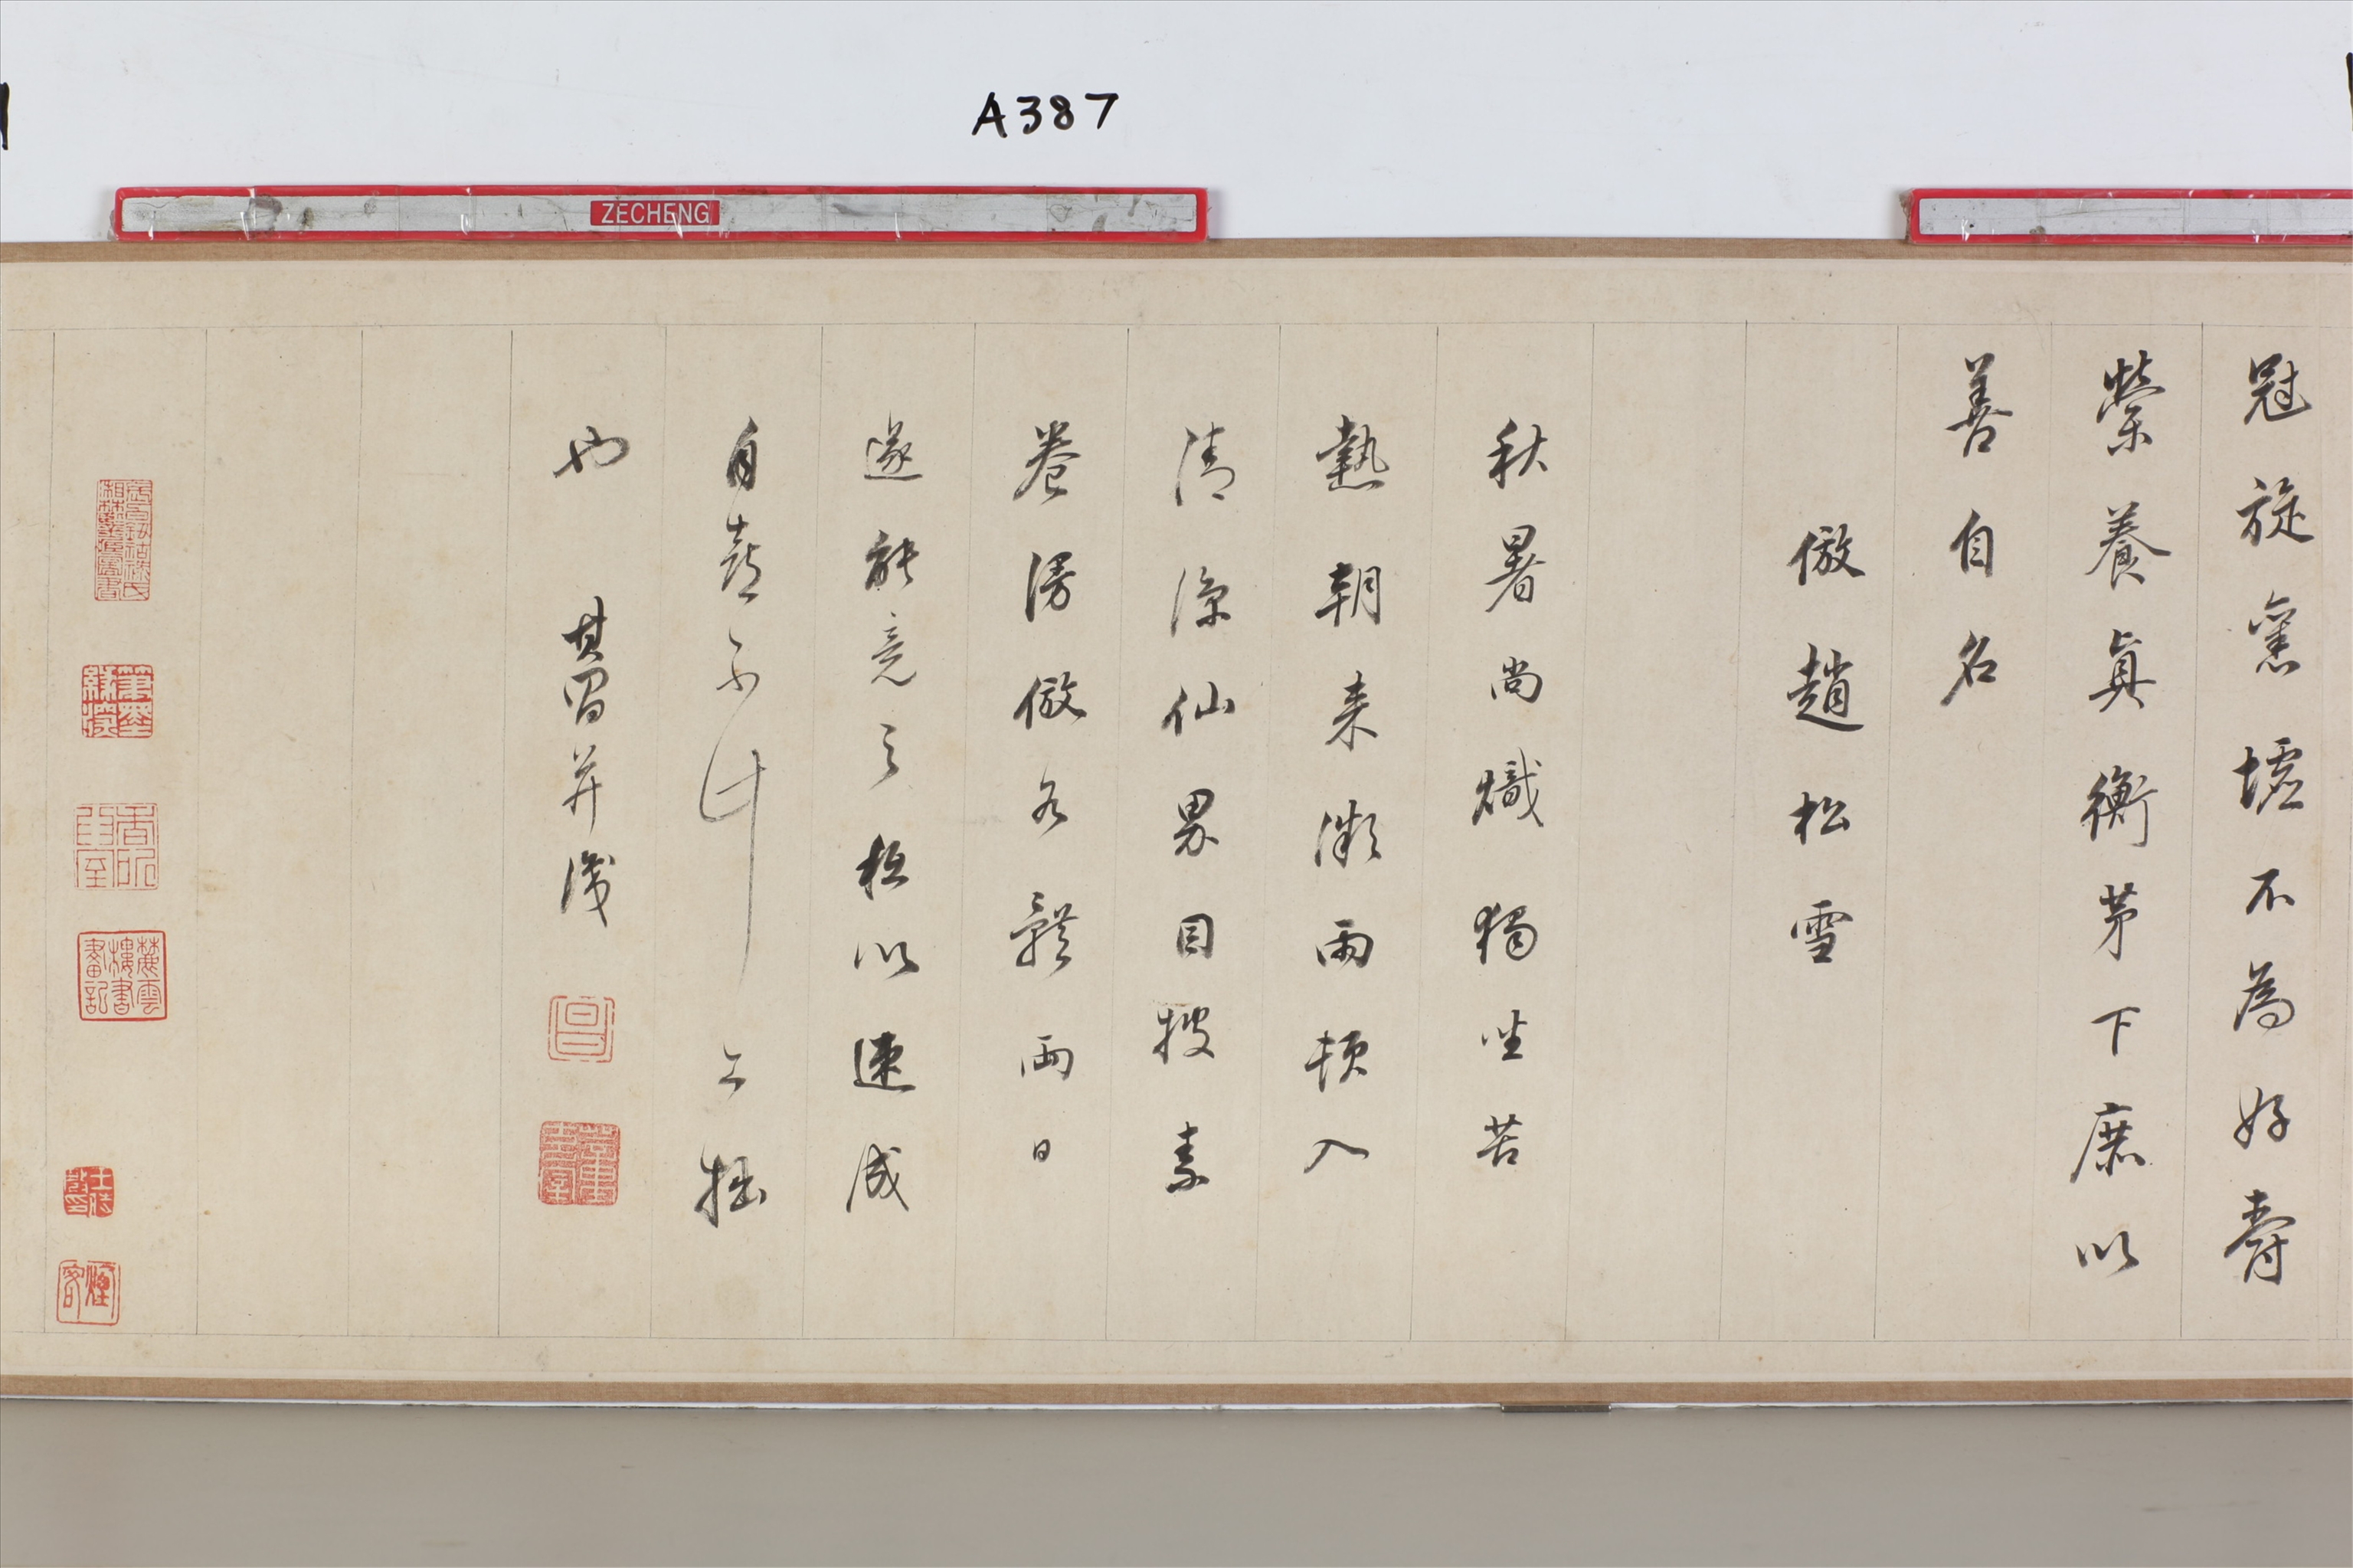 A387
ZECHENG
冠旋舊墟不為好壽
縈養真衡茅下庶以
善自名
倣趙松雪
秋暑尚熾獨坐苦
熱朝來微雨頓入
清涼仙界因搜素
卷漫倣各體兩日
遂能竟之極以速成
自喜不計工拙
也 其昌并識